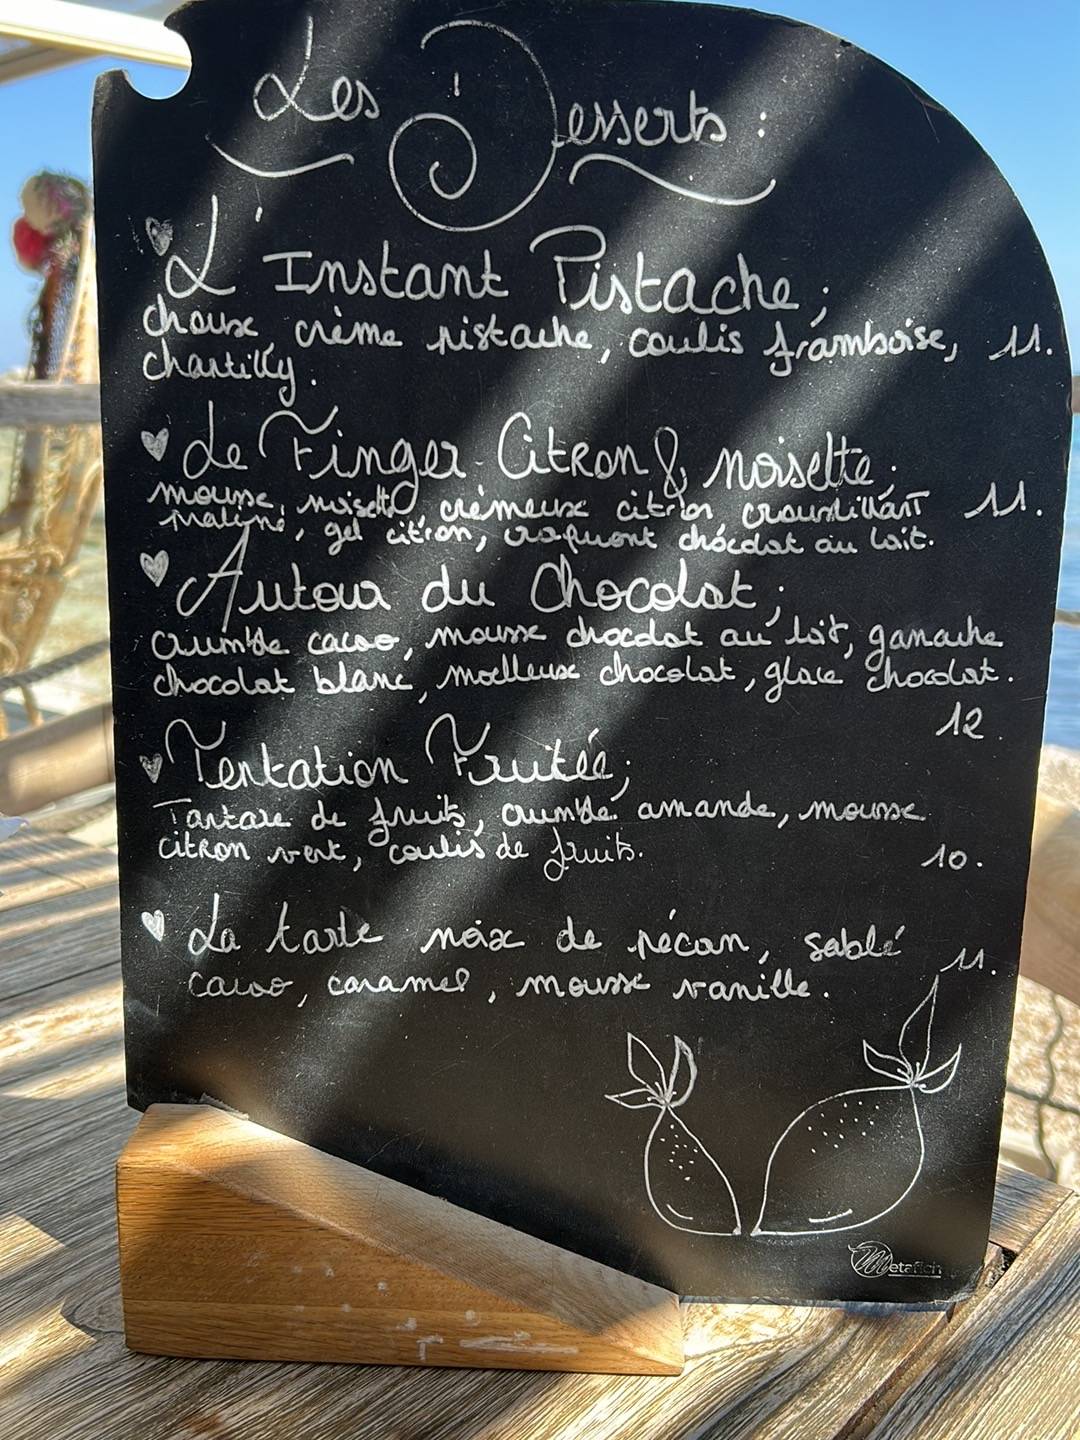 Les Desserts :
L'Instant Pistache ;
choux, crème pistache, coulis framboise, 11.
chantilly.
Le Finger Citron & noisette.
mousse noisette, crémeux citron croustillant 11.
praliné, gel citron, craquant chocolat au lait.
Autour du Chocolat ;
crumble cacao, mousse chocolat au lait, ganache
chocolat blanc, moelleux chocolat, glace chocolat.
12.
Tentation Fruitée ;
Tartare de fruits, crumble amande, mousse
citron vert, coulis de fruits. 10.
La tarte noix de pécan, sablé
cacao, caramel, mousse vanille. 11.
Metaflch